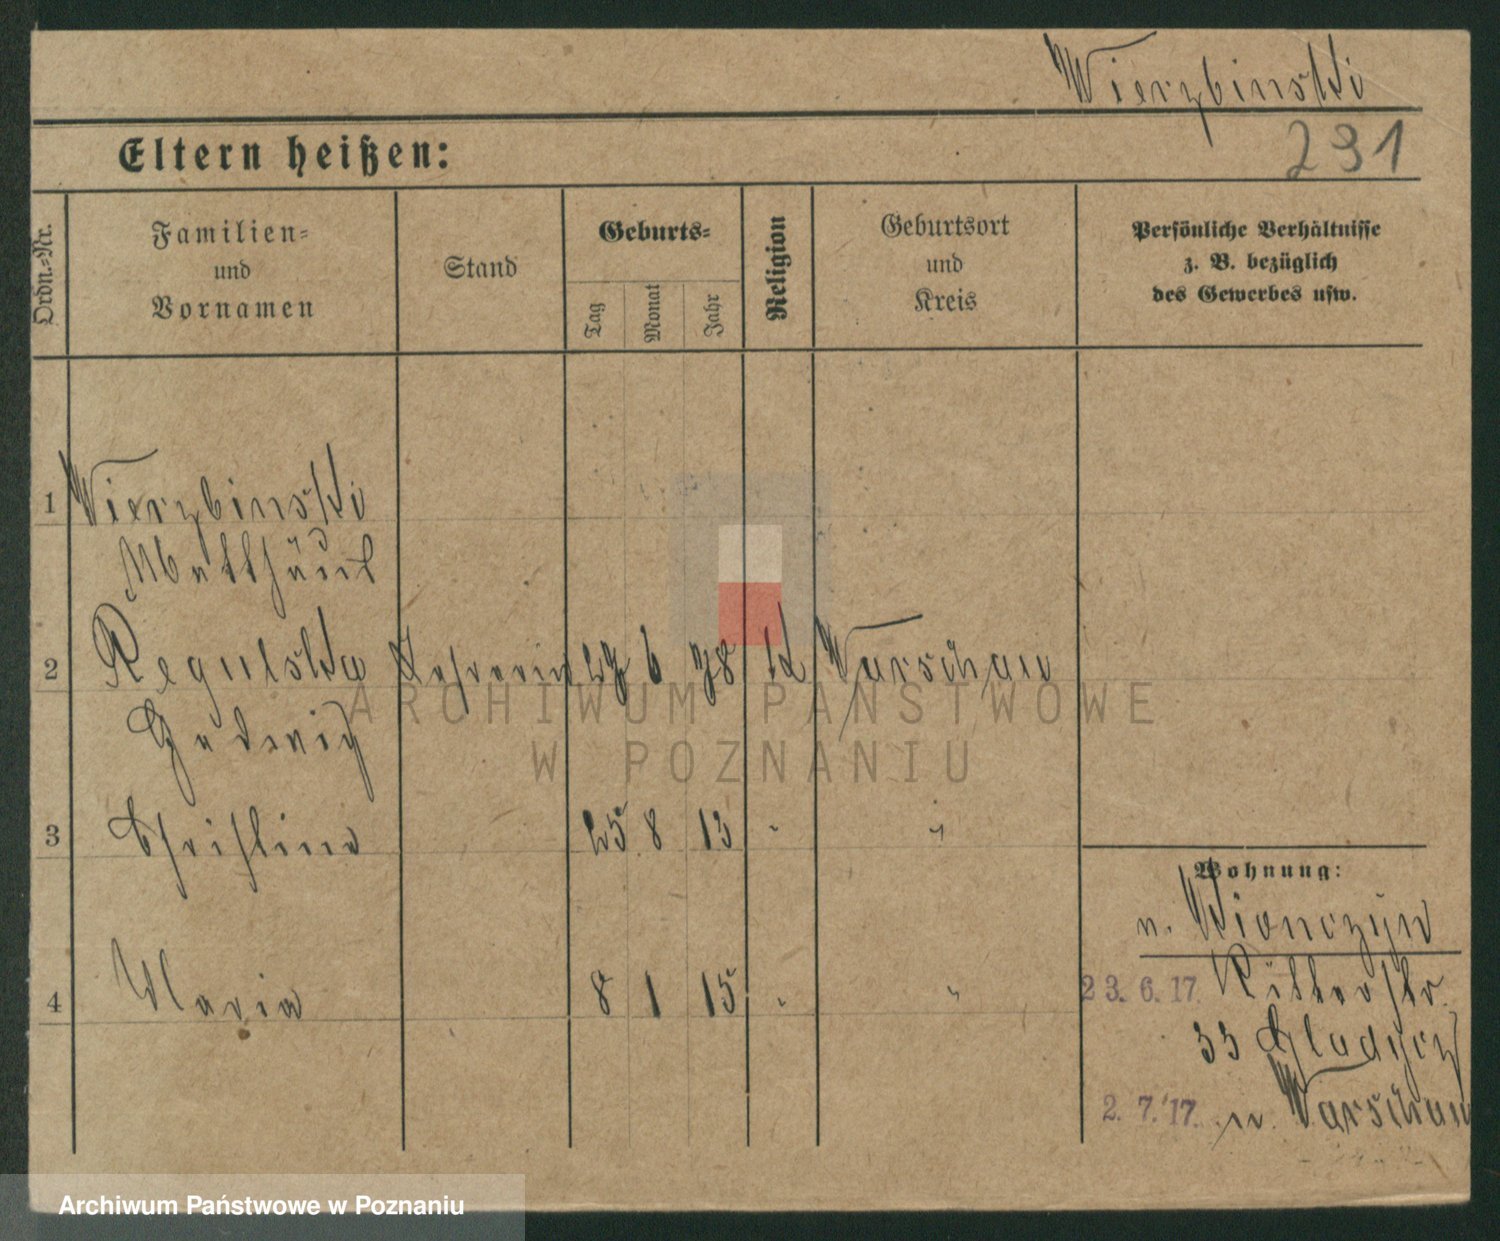 Wierzbinski
291
Eltern heißen:
Ordn.-Nr.
Familien-
und
Vornamen
Stand
Geburts-
Tag
Monat
Jahr
Religion
Geburtsort
und
Kreis
Persönliche Verhältnisse
z. B. bezüglich
des Gewerbes usw.
1 Wierzbinski
Matthäus
2 Regulska Lehrerin 27 6 78 k Warschau
Hedwig
3 Christine 25 8 13 " "
4 Maria 8 1 15 " "
Wohnung:
n.
23. 6. 17. Ritterstr.
33
2. 7. 17. n. Warschau
ARCHIWUM PAŃSTWOWE
W POZNANIU
Archiwum Państwowe w Poznaniu